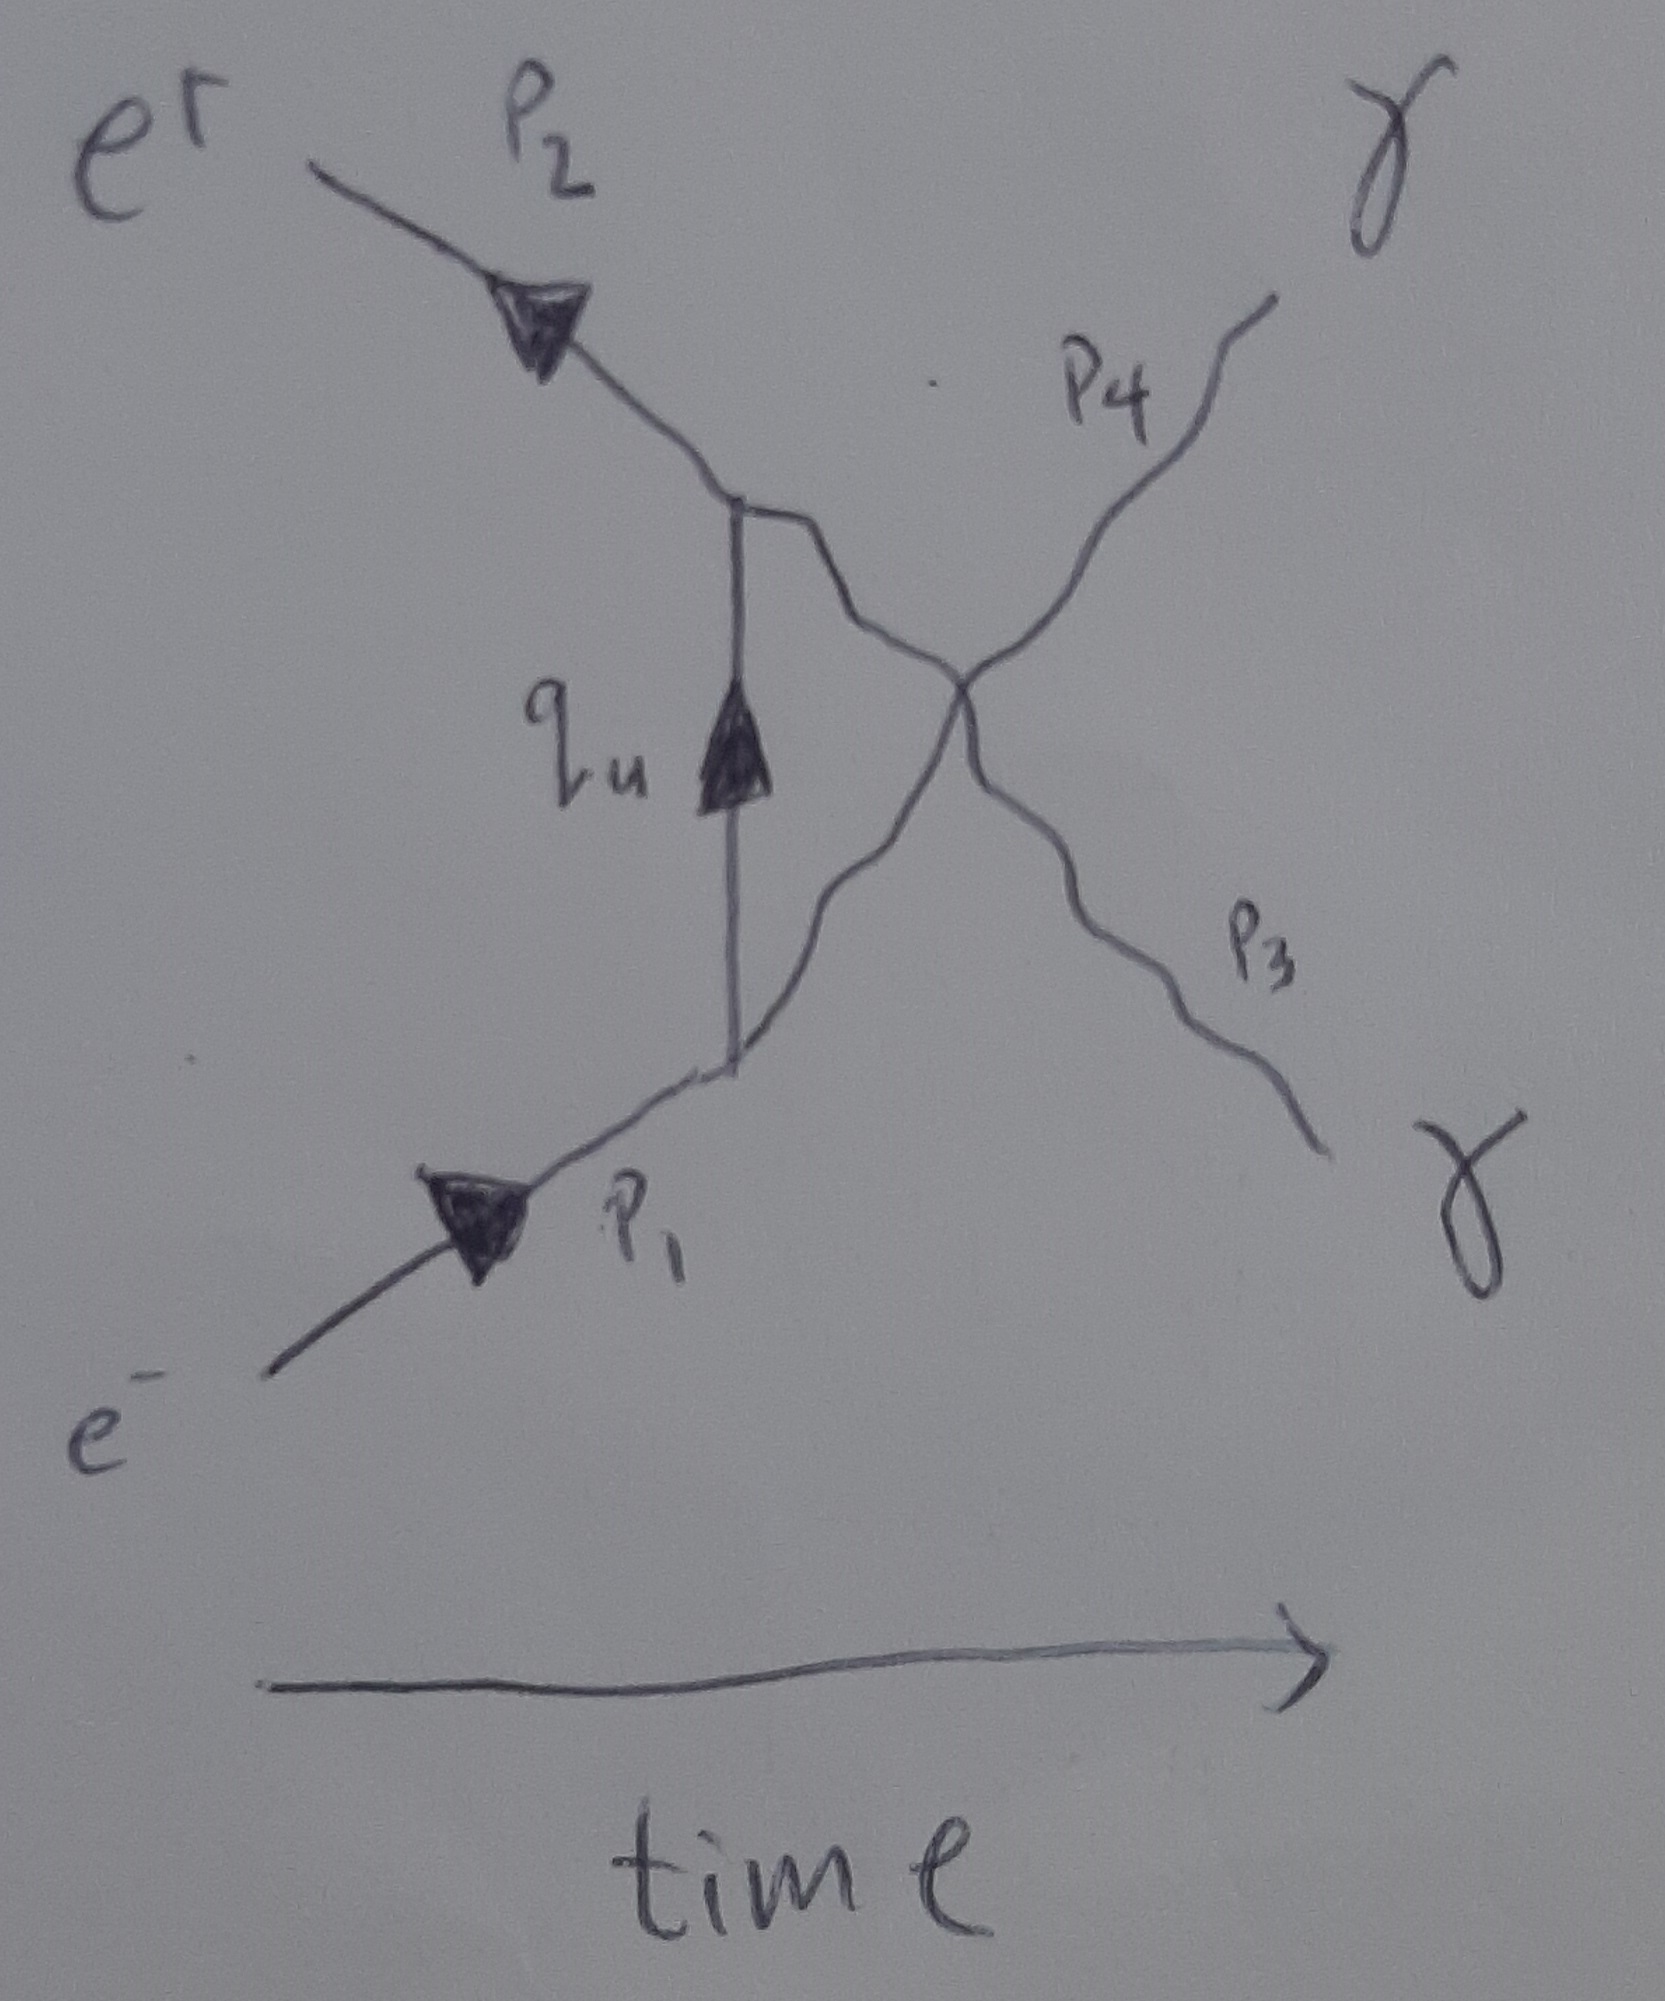 e⁺ P₂ γ
P₄
qᵤ
P₃
P₁ γ
e⁻
time